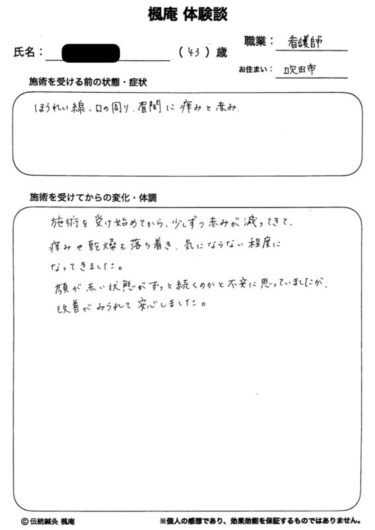 楓庵 体験談
氏名： （43）歳
職業： 看護師
お住まい： 吹田市
施術を受ける前の状態・症状
ほうれい線、口の周り、眉間に痒みと赤み
施術を受けてからの変化・体調
施術を受け始めてから、少しずつ赤みが減ってきて、
痒みや乾燥も落ち着き、気にならない程度に
なってきました。
顔が赤い状態がずっと続くのかと不安に思っていましたが、
改善がみられて安心しました。
© 伝統鍼灸 楓庵
※個人の感想であり、効果効能を保証するものではありません。